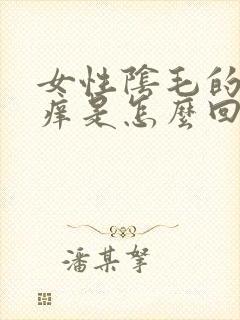 女性陰毛的
痒是怎麼回
潘某拏